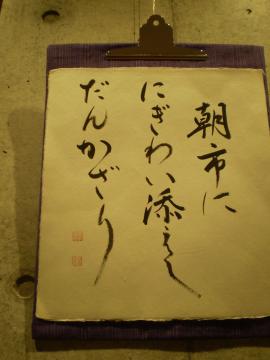 朝市に
にぎわい添えて
だんかざり